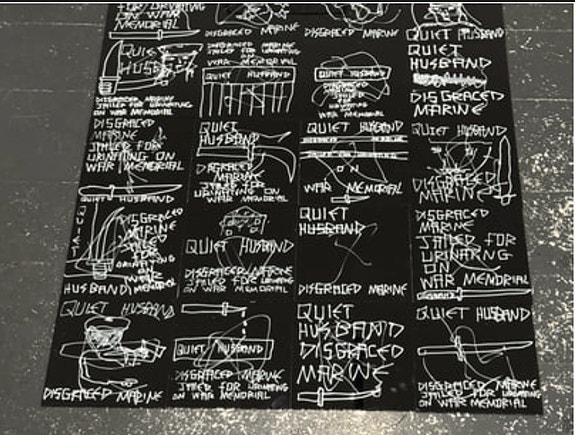 FOR URINATING
ON WAR
MEMORIAL
DISGRACED MARINE
DISGRACED MARINE
QUIET HUSBAND
QUIET
HUSBAND
DISGRACED MARINE
JAILED FOR URINATING
ON WAR MEMORIAL
DISGRACED MARINE
JAILED FOR URINATING
WAR MEMORIAL
QUIET HUSBAND
QUIET HUSBAND
DISGRACED
MARINE
JAILED
FOR
URINATING
ON
WAR MEMORIAL
QUIET
HUSBAND
DISGRACED
MARINE
DISGRACED
MARINE
JAILED FOR
URINATING ON
WAR MEMORIAL
QUIET HUSBAND
QUIET
HUSBAND
DISGRACED
MARINE
JAILED FOR
URINATING ON
WAR MEMORIAL
QUIET HUSBAND
ON
WAR MEMORIAL
QUIET HUSBAND
DISGRACED
MARINE
QUIET
DISGRACED
MARINE
JAILED
FOR
URINATING
ON
WAR
MEMORIAL
HUSBAND
QUIET HUSBAND
DISGRACED MARINE
JAILED FOR URINATING
ON WAR MEMORIAL
QUIET
HUSBAND
DISGRACED MARINE
DISGRACED
MARINE
JAILED FOR
URINATING
ON
WAR MEMORIAL
QUIET HUSBAND
DISGRACED MARINE
QUIET HUSBAND
DISGRACED MARINE
JAILED FOR URINATING
ON WAR MEMORIAL
QUIET
HUSBAND
DISGRACED
MARINE
QUIET HUSBAND
DISGRACED MARINE
JAILED FOR URINATING
ON WAR MEMORIAL